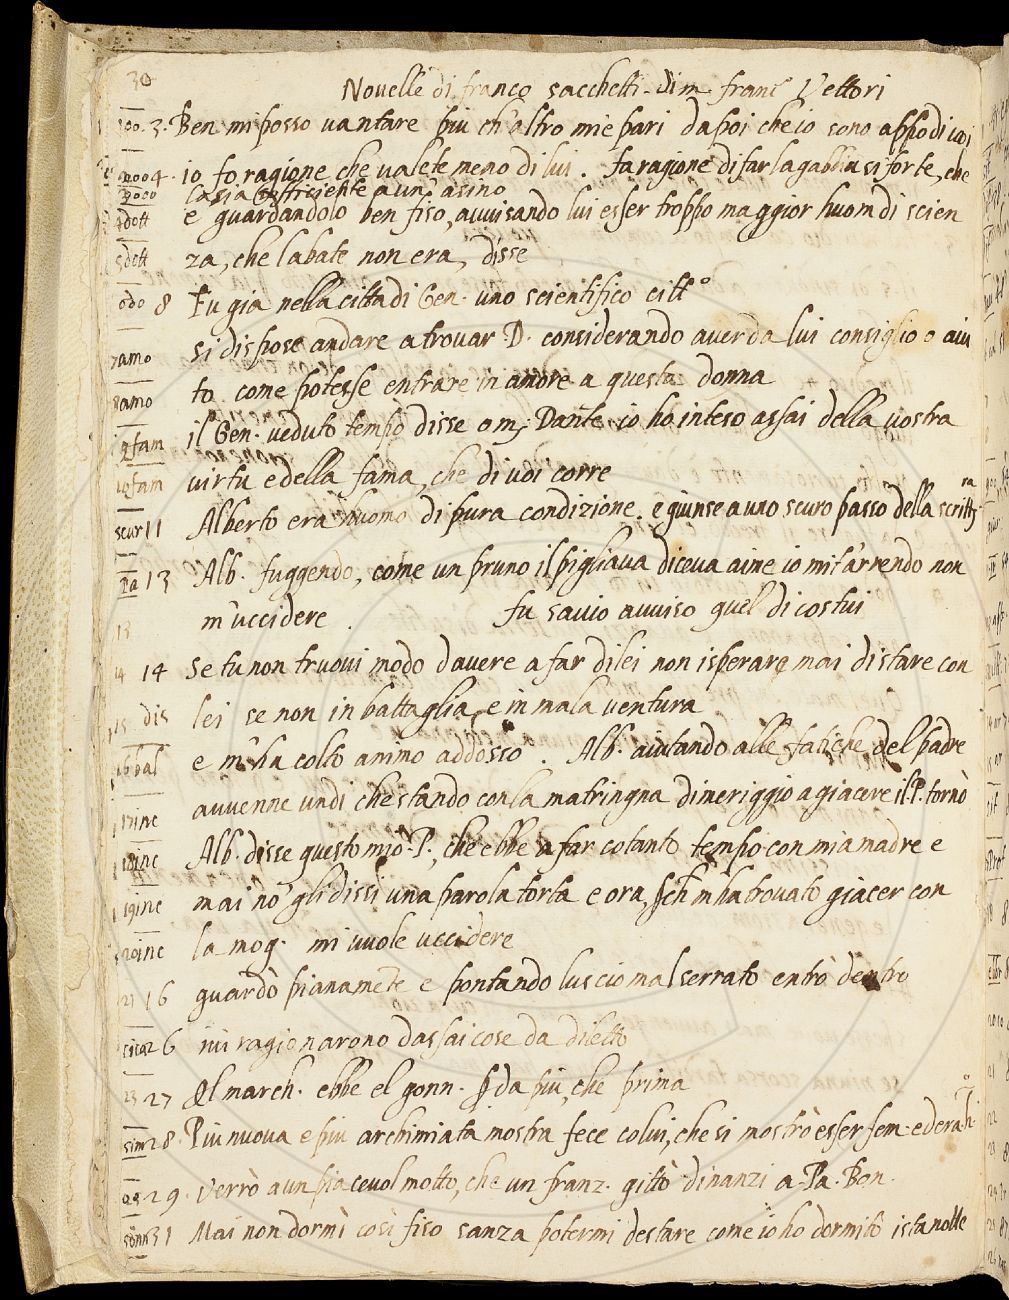 30
Novelle di franco sacchetti di m. franc Vettori
3. Ben mi posso vantare piu ch'altro mie pari dapoi che io sono appo di voi
4. io fo ragione che valete meno di lui. fa ragione di far la gabbia si forte, che
la sia sofficiente a un asino
dott e guardandolo ben fiso, avvisando lui esser troppo maggior huom di scien
5 dott za, che labate non era, disse
odo 8 Fu gia nella citta di Gen. uno scientifico citt.o
7 amo si dispose andare a trovar D. considerando aver da lui consiglio o aiu
8 amo to come potesse entrare in amore a questa donna
9 fam il Gen. veduto tempo disse o m. Dante io ho inteso assai della vostra
10 fam virtu e della fama, che di voi corre
scur 11 Alberto era huomo di pura condizione. e giunse a uno scuro passo della scritt.ra
pa 13 Alb. fuggendo, come un pruno il pigliava diceva aime io mit'arrendo non
13 m'uccidere. fu savio avviso quel di costui
14 14 Se tu non truovi modo d'avere a far di lei non isperare mai di stare con
15 dis lei se non in battaglia, e in mala ventura
16 bal e m'ha colto animo addosso. Alb. aiutando alle fatiche del padre
17 inc avvenne un di che stando con la matringna di meriggio a giacere il P. tornò
18 inc Alb. disse questo mio P., che ebbe a far cotanto tempo con mia madre e
19 inc mai nō gli dissi una parola torta e ora, pch m'ha trovato giacer con
20 inc la mog. mi vuole uccidere
21 16 guardò pianamēte e pontando luscio mal serrato entrò dentro
26 ivi ragionarono d'assai cose da diletto
23 27 Al march. ebbe el gonn. p da piu, che prima
sim 28. Piu nuova e piu archimiata mostra fece colui, che si mostrò esser fem. ed era h.o
29. verrò a un piacevol motto, che un franz. gittò dinanzi a Pa. Bon.
sonn 31 Mai non dormì così fiso sanza potermi destare come io ho dormito ista notte